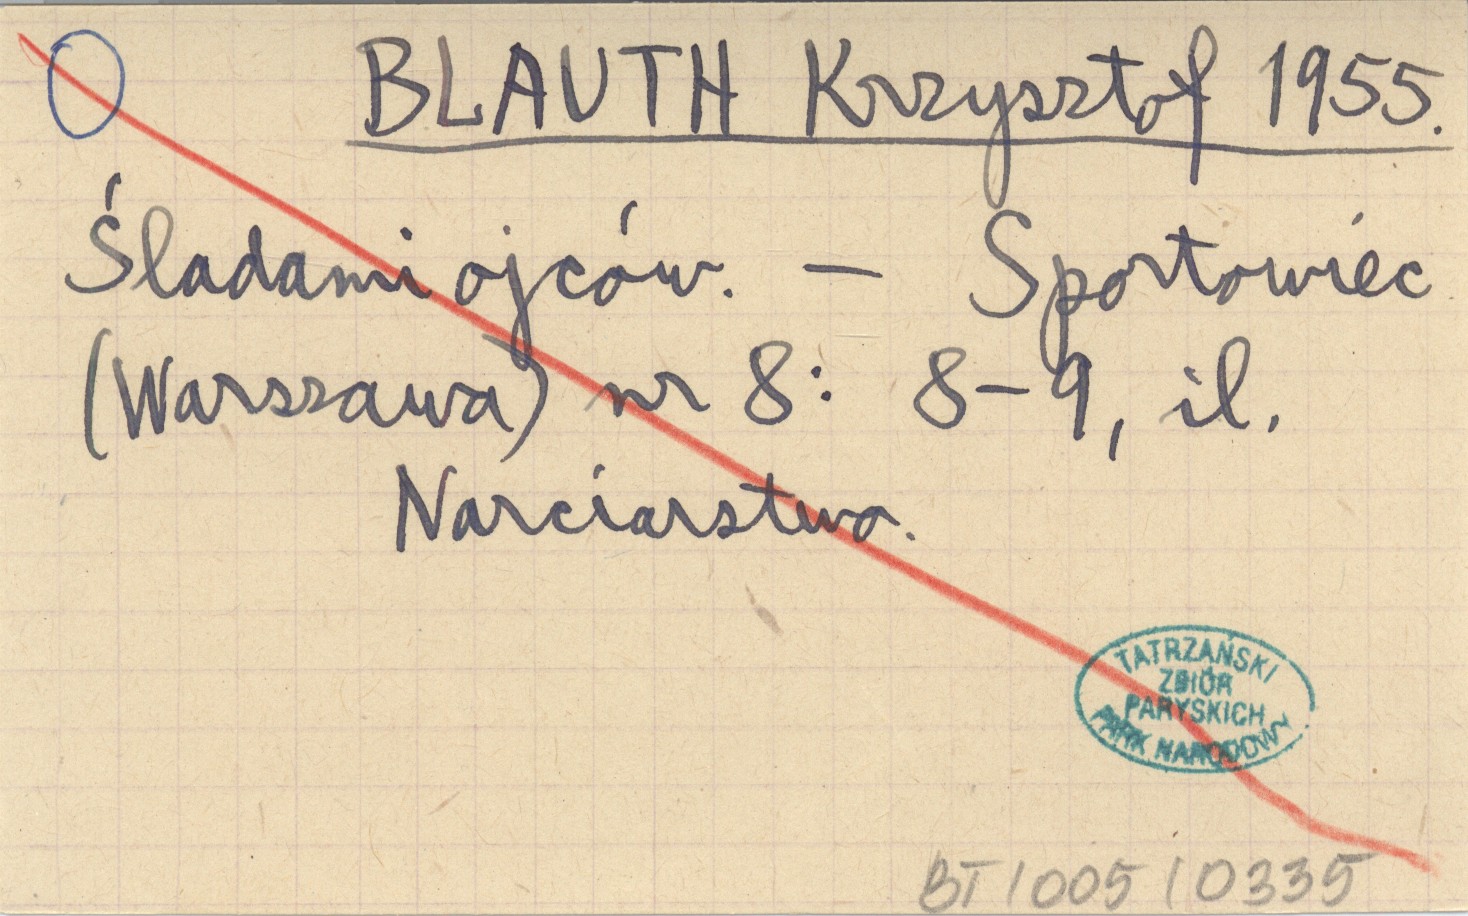 BLAUTH Krzysztof 1955.
Śladami ojców. — Sportowiec
(Warszawa) nr 8: 8-9, il.
Narciarstwo.
TATRZAŃSKI
ZBIÓR
PARYSKICH
PARK NARODOWY
BT/005/0335